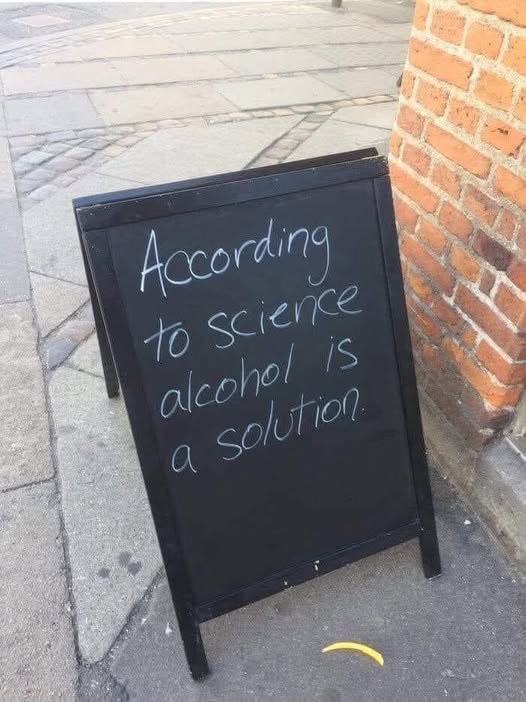 According
to science
alcohol is
a solution.